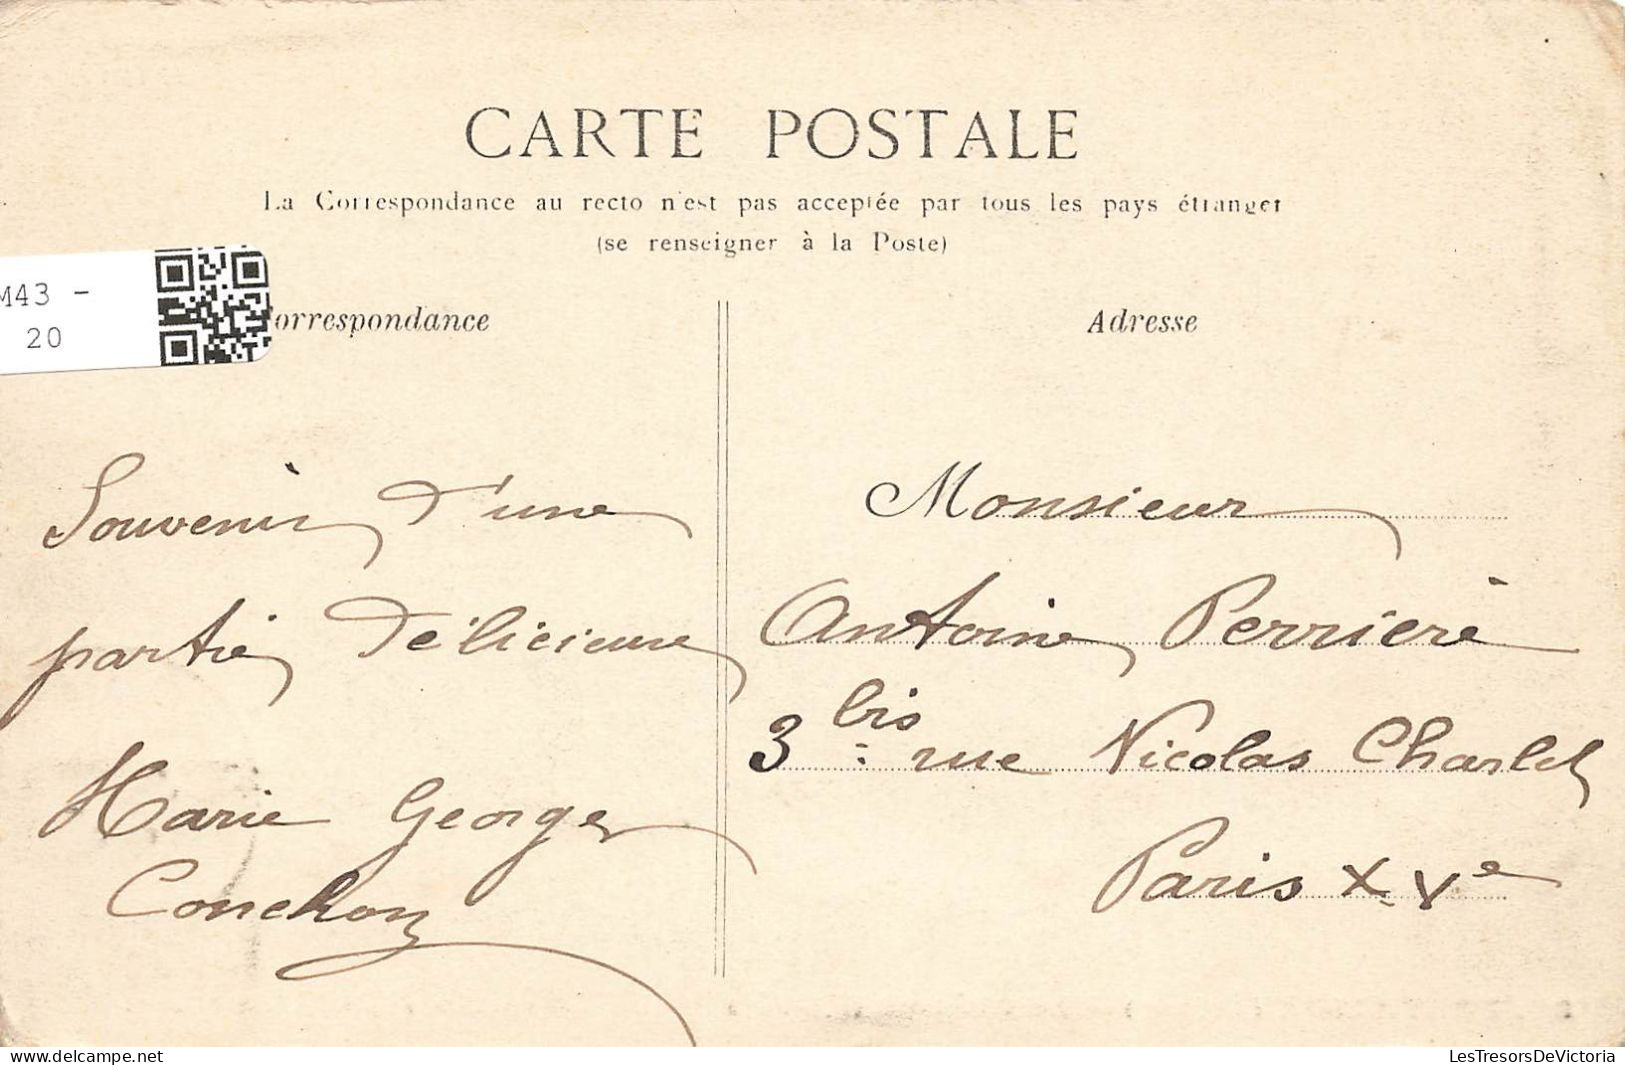 CARTE POSTALE
La Correspondance au recto n'est pas acceptée par tous les pays étranger
(se renseigner à la Poste)
M43 -
20
orrespondance
Adresse
Souvenir d'une
partie délicieuse
Marie George
Conchon
Monsieur
Antoine Perrière
3 bis rue Nicolas Charlet
Paris XVe
delcampe.net
LesTresorsDeVictoria